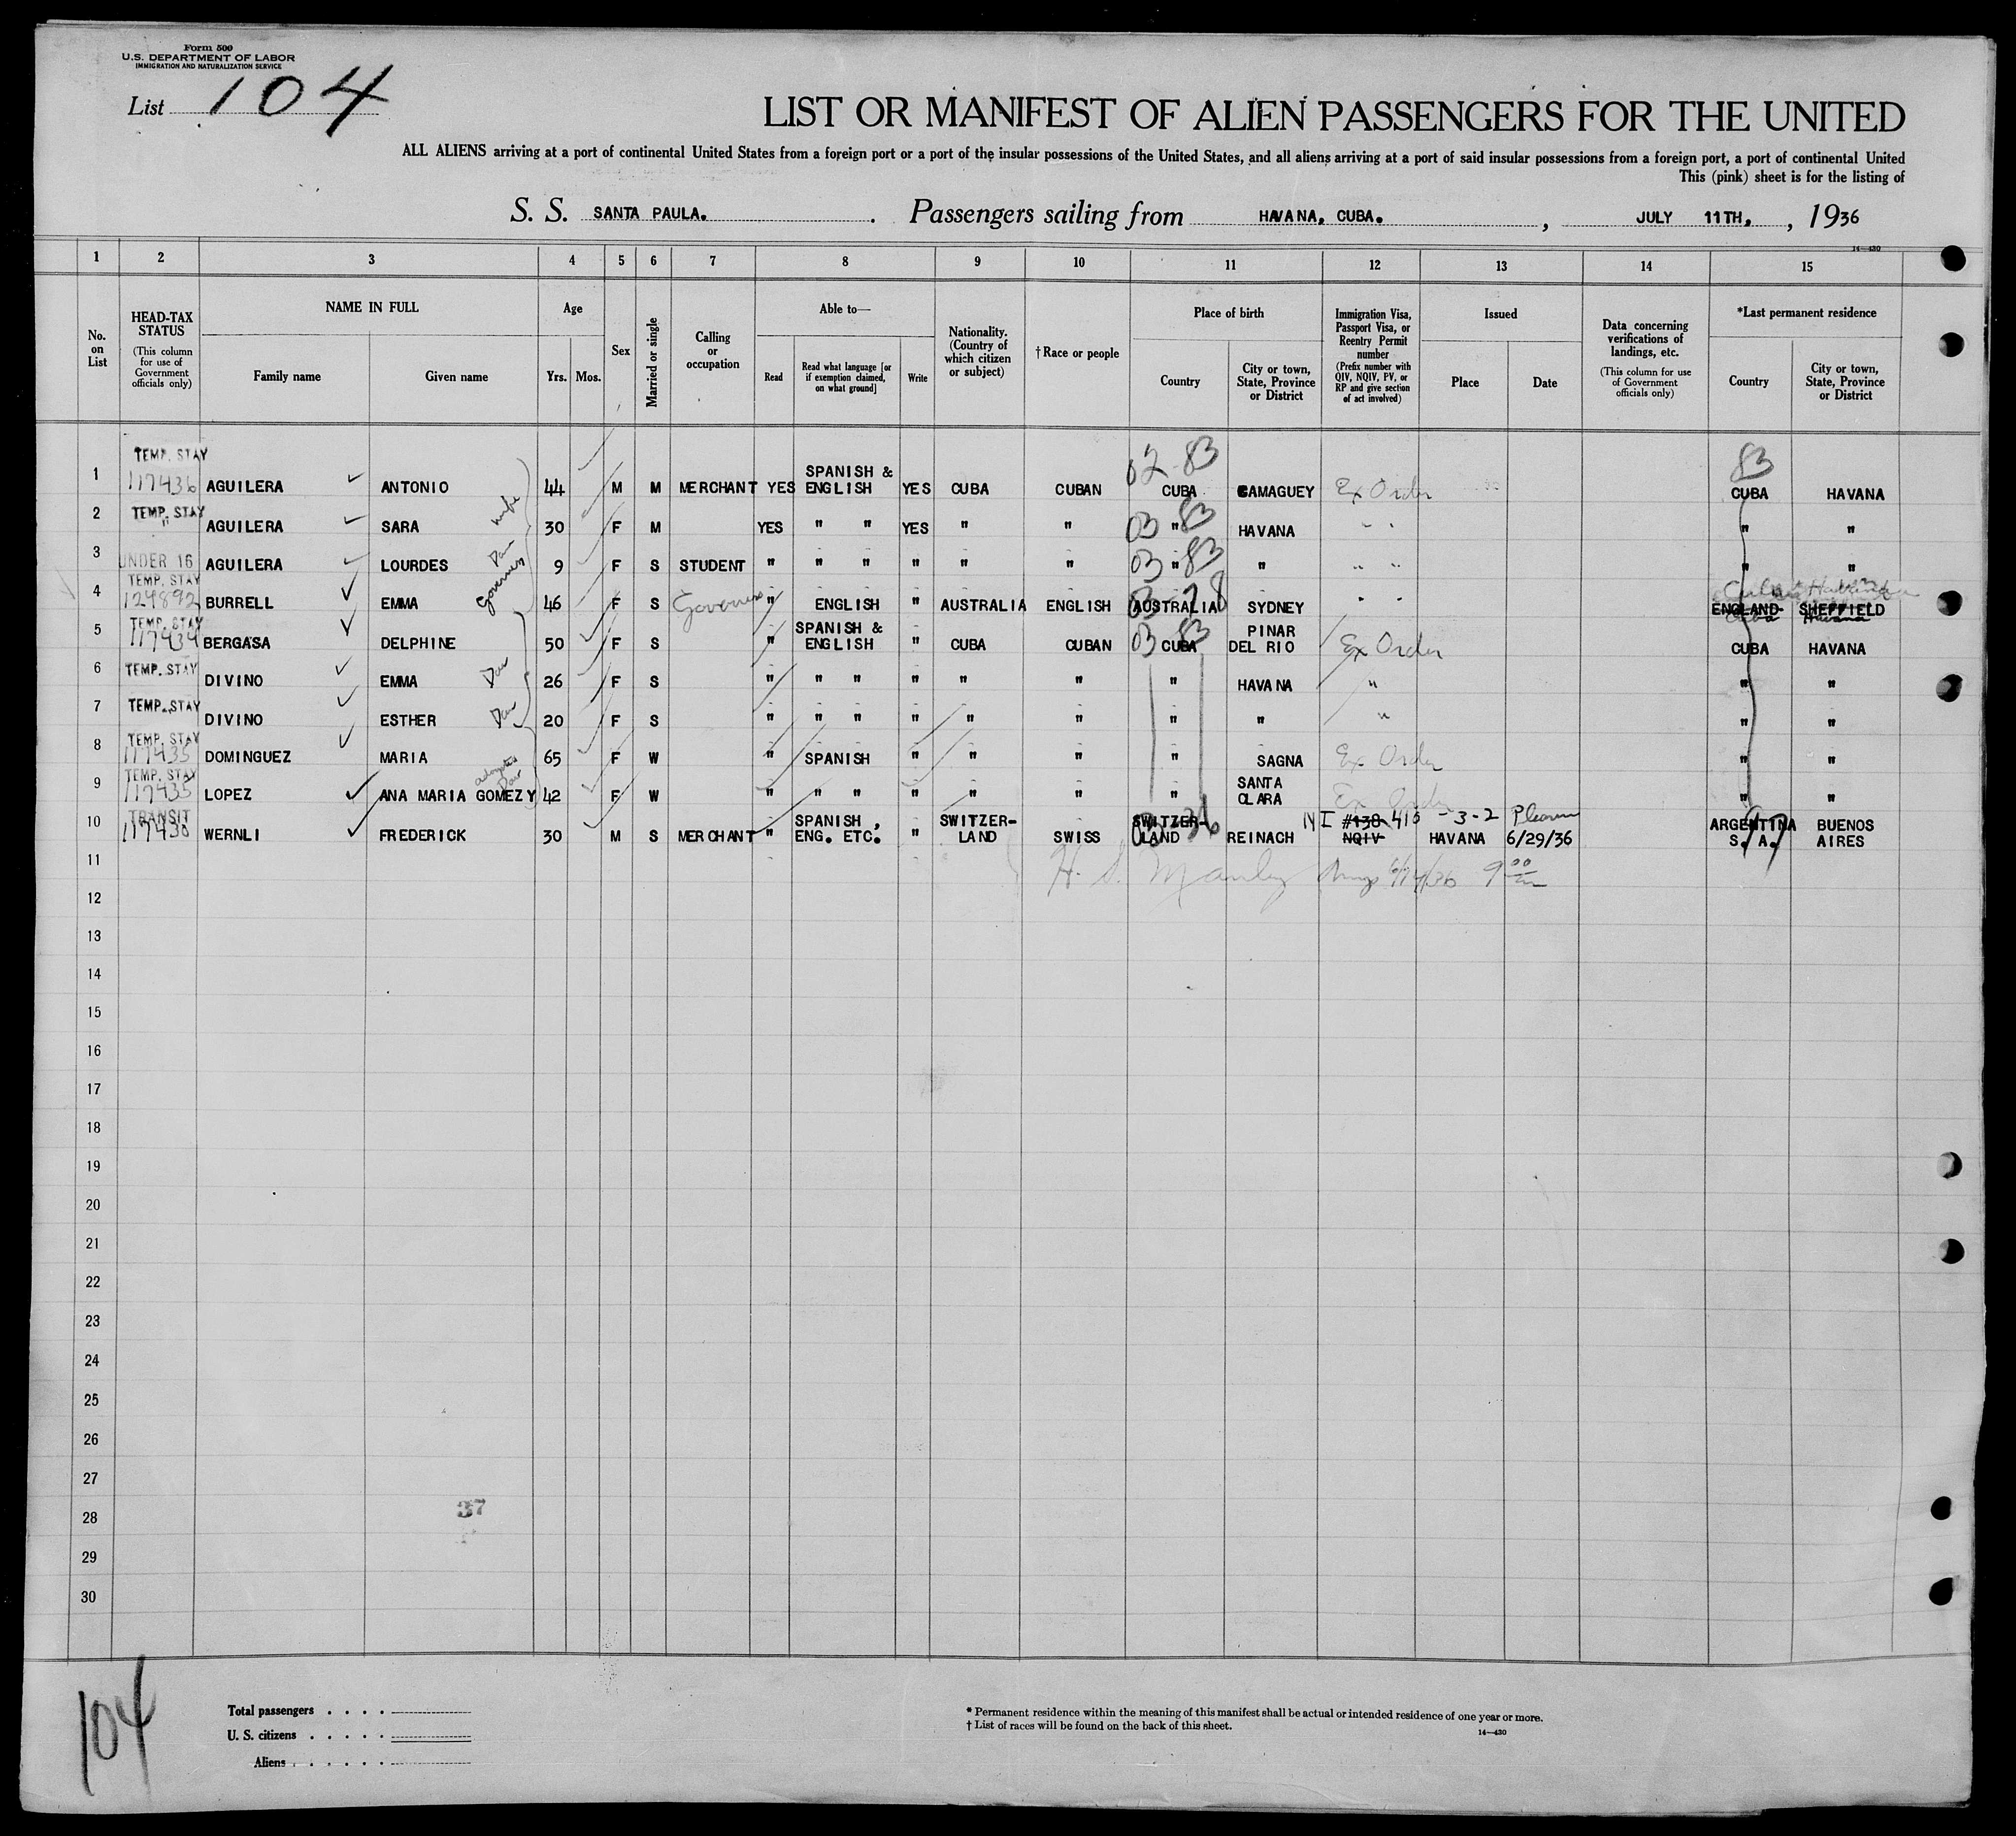 Form 500
U.S. DEPARTMENT OF LABOR
IMMIGRATION AND NATURALIZATION SERVICE
List 104
LIST OR MANIFEST OF ALIEN PASSENGERS FOR THE UNITED
ALL ALIENS arriving at a port of continental United States from a foreign port or a port of the insular possessions of the United States, and all aliens arriving at a port of said insular possessions from a foreign port, a port of continental United
This (pink) sheet is for the listing of
S. S. SANTA PAULA. . Passengers sailing from HAVANA, CUBA. , JULY 11TH, , 1936
14—430
1 2 3 4 5 6 7 8 9 10 11 12 13 14 15
No. on List
HEAD-TAX STATUS
(This column for use of Government officials only)
NAME IN FULL
Family name
Given name
Age
Yrs. Mos.
Sex
Married or single
Calling or occupation
Able to—
Read
Read what language [or if exemption claimed, on what ground]
Write
Nationality. (Country of which citizen or subject)
†Race or people
Place of birth
Country
City or town, State, Province or District
Immigration Visa, Passport Visa, or Reentry Permit number
(Prefix number with QIV, NQIV, PV, or RP and give section of act involved)
Issued
Place
Date
Data concerning verifications of landings, etc.
(This column for use of Government officials only)
*Last permanent residence
Country
City or town, State, Province or District
TEMP. STAY 02-83 83
1 117436 AGUILERA ANTONIO 44 M M MERCHANT YES SPANISH & ENGLISH YES CUBA CUBAN CUBA CAMAGUEY Ex Order CUBA HAVANA
2 TEMP. STAY " AGUILERA SARA wife 30 F M YES " " YES " " 03 " 83 HAVANA " " " "
3 UNDER 16 AGUILERA LOURDES Dau 9 F S STUDENT " " " " " " 03 " 83 " " " " "
4 TEMP. STAY 124892 BURRELL EMMA Governess 46 F S Governess " ENGLISH " AUSTRALIA ENGLISH AUSTRALIA SYDNEY " " ENGLAND SHEFFIELD Cuba Havana
5 TEMP. STAY 117434 BERGASA DELPHINE 50 F S " SPANISH & ENGLISH " CUBA CUBAN 03 83 CUBA PINAR DEL RIO Ex Order CUBA HAVANA
6 TEMP. STAY DIVINO EMMA Dau 26 F S " " " " " " " HAVANA " " "
7 TEMP. STAY DIVINO ESTHER Dau 20 F S " " " " " " " " " " "
8 TEMP. STAY 117435 DOMINGUEZ MARIA 65 F W " SPANISH " " " " SAGNA Ex Order " "
9 TEMP. STAY 117435 LOPEZ ANA MARIA GOMEZ Y adopted Dau 42 F W " " " " " " " SANTA CLARA Ex Order " "
10 TRANSIT 117430 WERNLI FREDERICK 30 M S MERCHANT " SPANISH, ENG. ETC. " SWITZER-LAND SWISS SWITZER-LAND REINACH #138 NQIV 415 -3-2 HAVANA 6/29/36 ARGENTINA S. A. BUENOS AIRES
11 H. S. Manley 9 00
12
13
14
15
16
17
18
19
20
21
22
23
24
25
26
27
28 37
29
30
104
Total passengers . . . .
U. S. citizens . . . . .
Aliens . . . . . .
* Permanent residence within the meaning of this manifest shall be actual or intended residence of one year or more.
† List of races will be found on the back of this sheet.
14—430